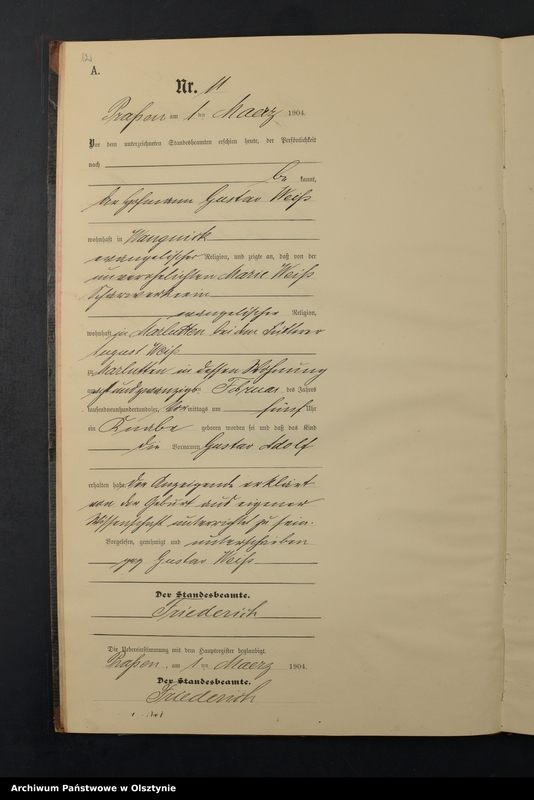 A.
Nr. 11
Praßen am 1 ten Maerz 1904.
Vor dem unterzeichneten Standesbeamten erschien heute, der Persönlichkeit
nach
be kannt,
der Hofmann Gustav Weiß
wohnhaft in
evangelischer Religion, und zeigte an, daß von der
unverehelichten Marie Weiß
Scharwerkerin
evangelischer Religion,
wohnhaft in Marlutten bei dem Fütterer
August Weiß
zu Marlutten in dessen Wohnung
am Februar des Jahres
tausendneunhundertundvier, Vormittags um fünf Uhr
ein Knabe geboren worden sei und daß das Kind
die Vornamen Gustav Adolf
erhalten habe. Der Anzeigende erklärt
von der Geburt aus eigener
Wissenschaft unterrichtet zu sein.
Vorgelesen, genehmigt und unterschrieben
gez Gustav Weiß
Der Standesbeamte.
Friederich
Die Uebereinstimmung mit dem Hauptregister beglaubigt.
Praßen, am 1 ten Maerz 1904.
Der Standesbeamte.
Friederich
Archiwum Państwowe w Olsztynie